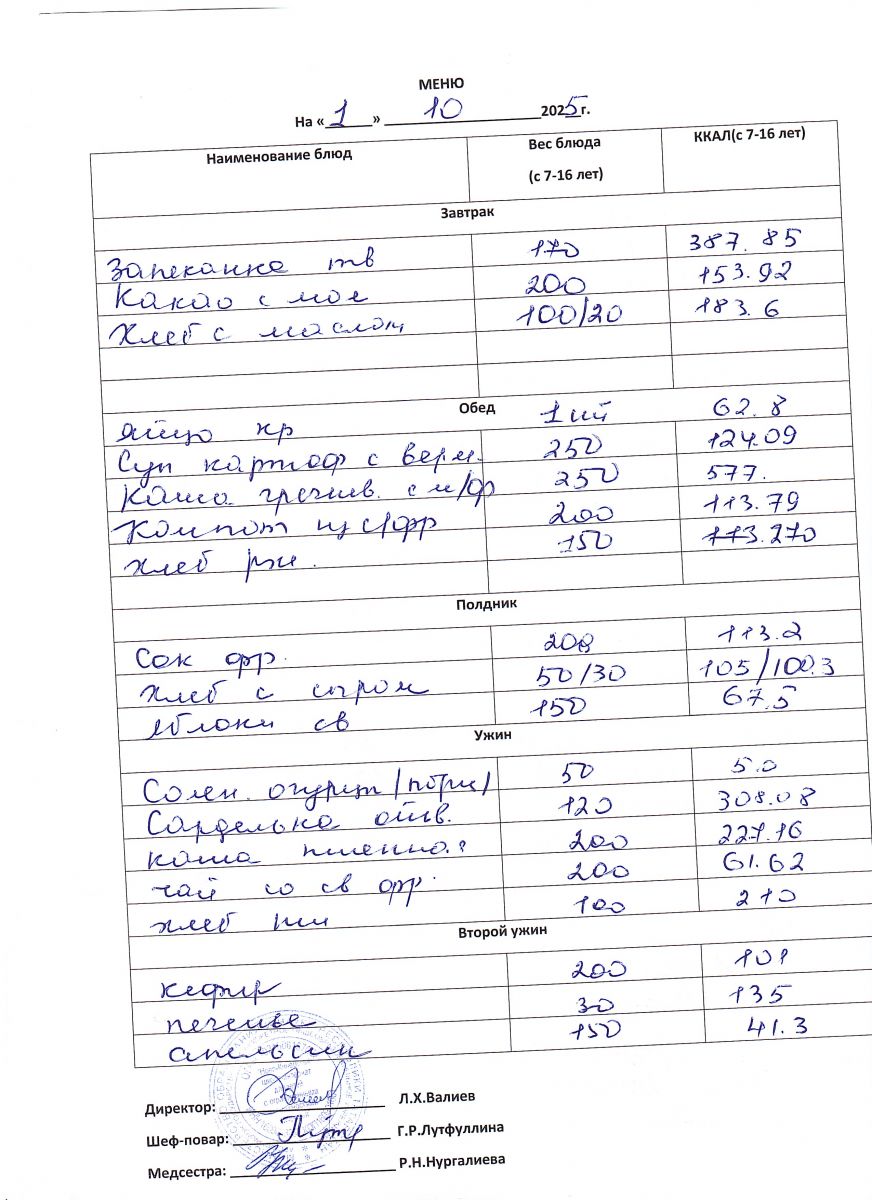 МЕНЮ
На «1» 10 2025 г.
Наименование блюд Вес блюда (с 7-16 лет) ККАЛ(с 7-16 лет)
Завтрак
Запеканка тв 170 387.85
Какао с мол 200 153.92
Хлеб с маслом 100/20 183.6
Обед
Яйцо кр 1 шт 62.8
Суп картоф с верм. 250 124.09
Каша гречнев. с м/ф 250 577.
Компот из с/фр 200 113.79
Хлеб рж. 150 270
Полдник
Сок фр. 200 113.2
Хлеб с сыром 50/30 105/100.3
Яблоки св 150 67.5
Ужин
Солен. огурцы /порц/ 50 5.0
Сарделька отв. 120 308.08
каша пшенная 200 227.16
чай со св фр. 200 61.62
хлеб пш 100 210
Второй ужин
кефир 200 101
печенье 30 135
апельсин 150 41.3
Директор: Л.Х.Валиев
Шеф-повар: Г.Р.Лутфуллина
Медсестра: Р.Н.Нургалиева